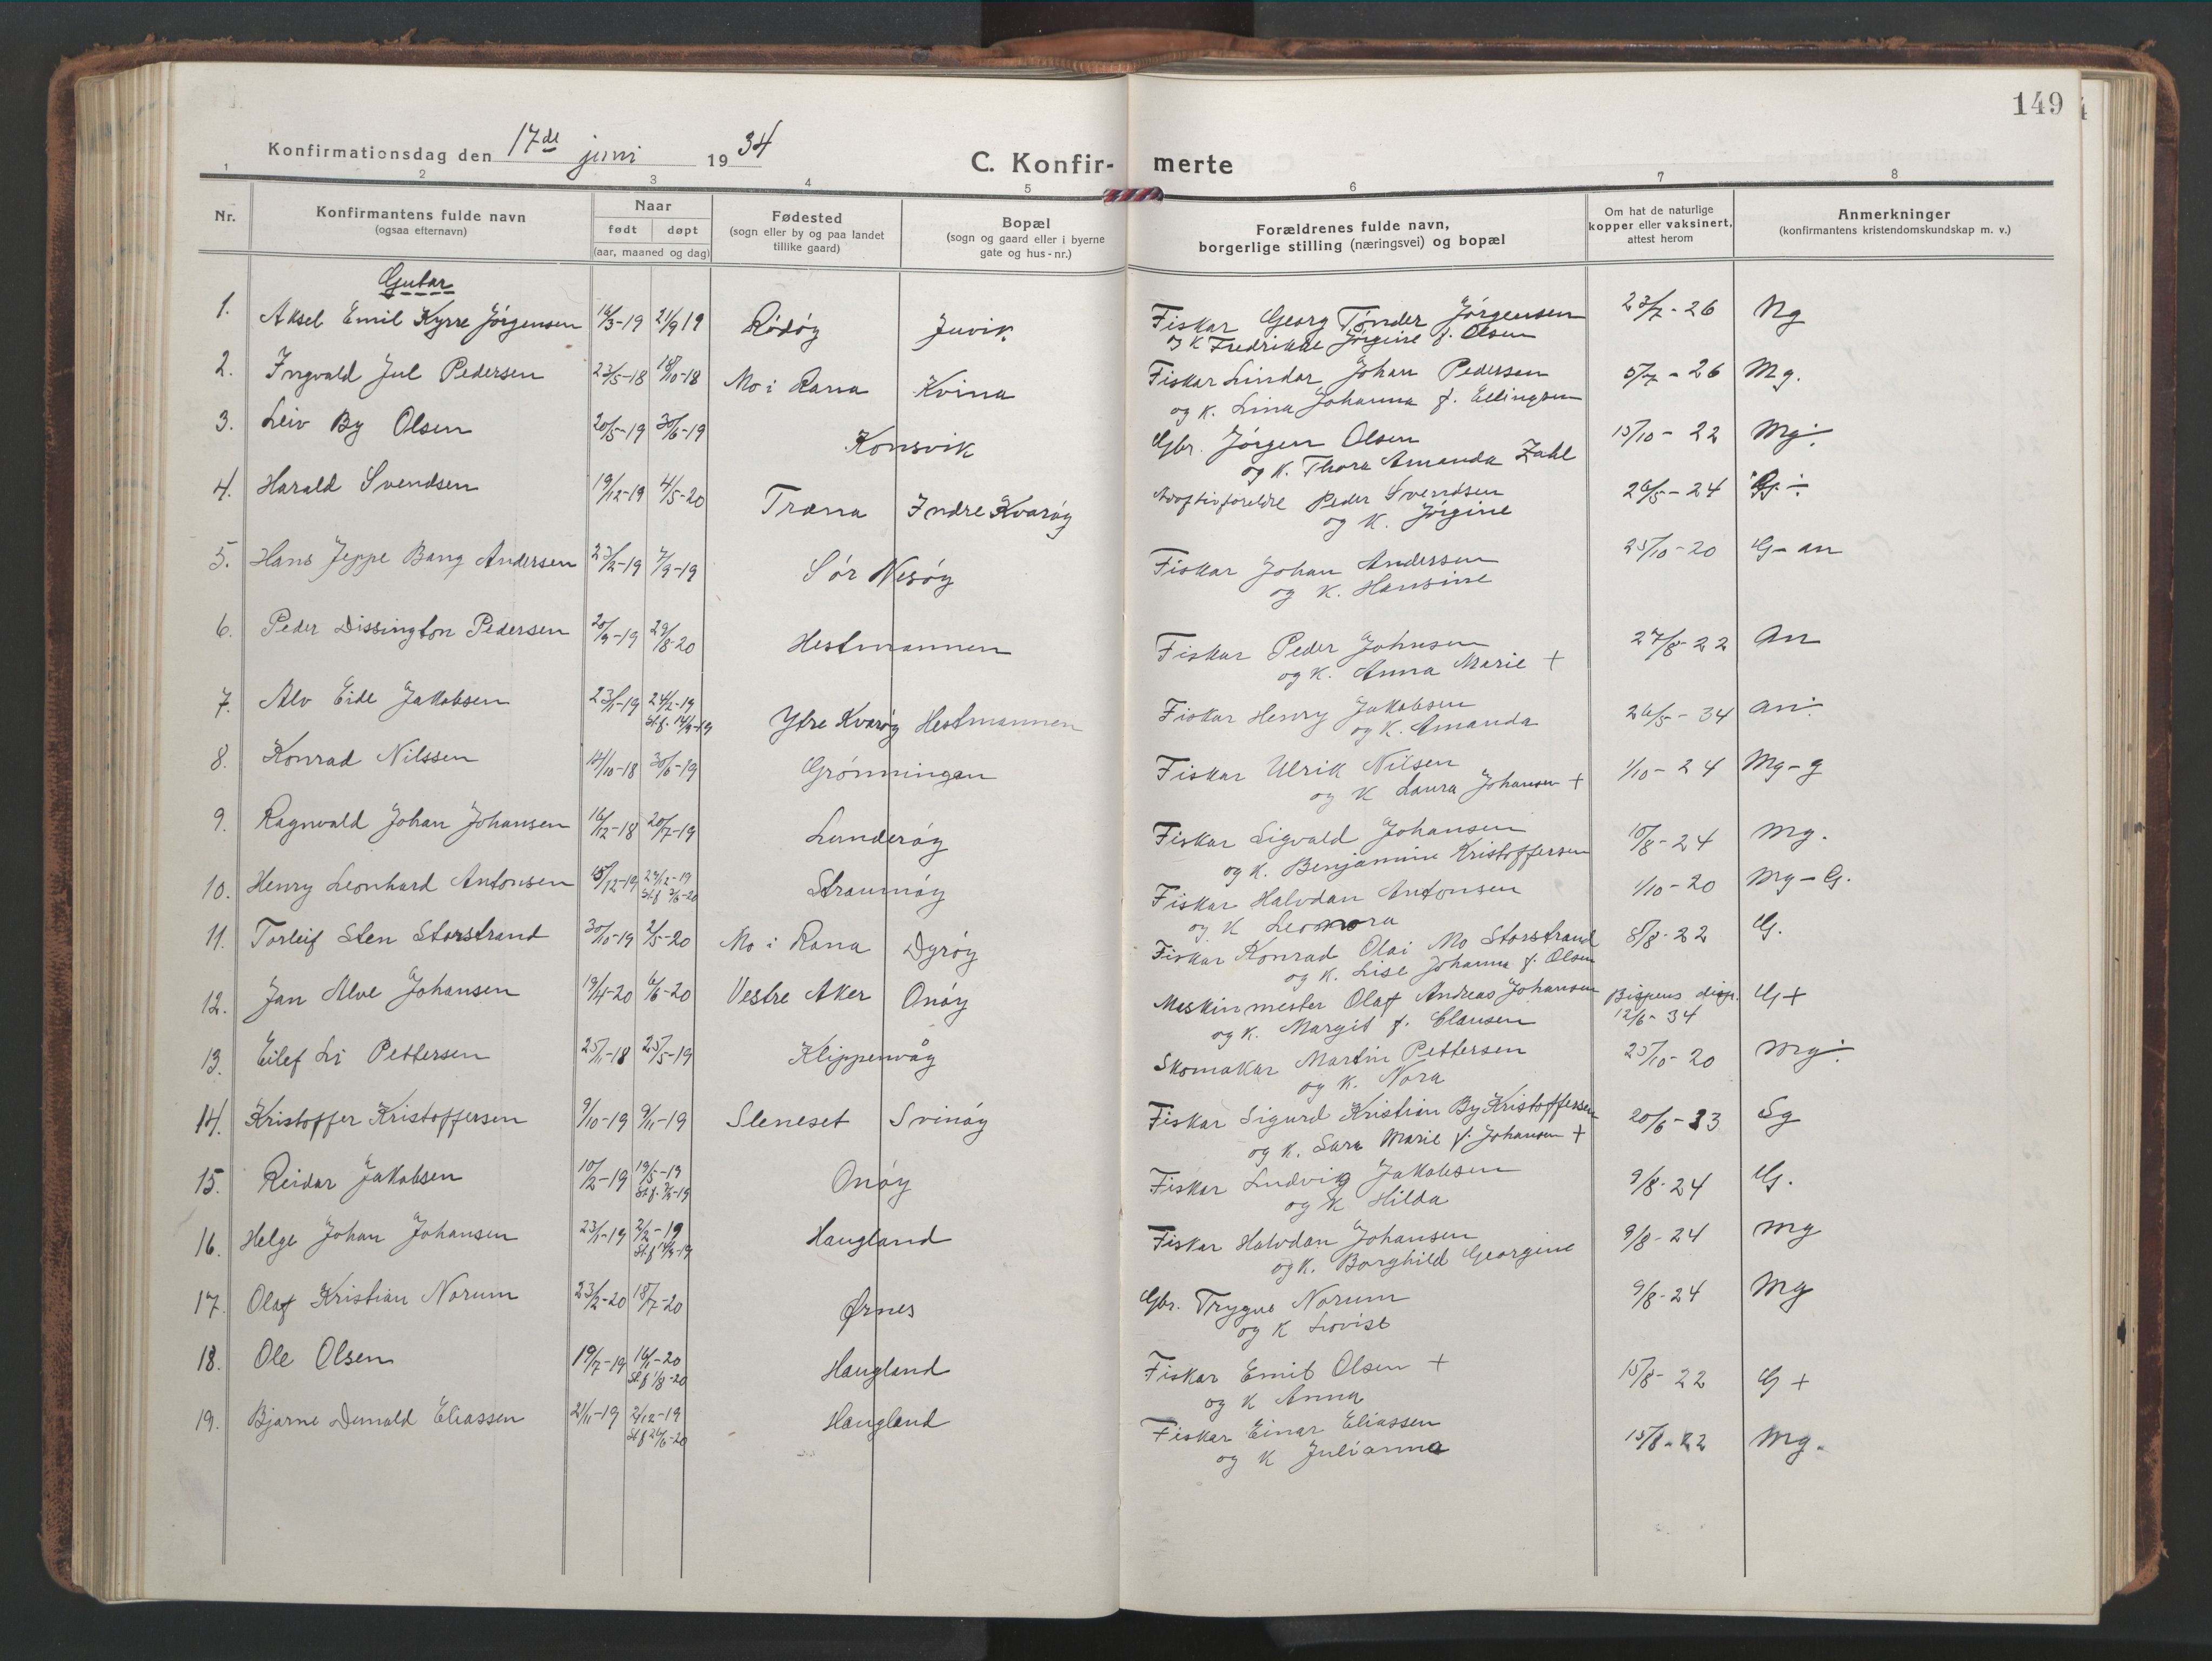 149
Konfirmationsdag den 17de juni 1934
C. Konfirmerte
1 2 3 4 5 6 7 8
Nr. | Konfirmantens fulde navn (ogsaa efternavn) | Naar født døpt (aar, maaned og dag) | Fødested (sogn eller by og paa landet tillike gaard) | Bopæl (sogn og gaard eller i byerne gate og hus-nr.) | Forældrenes fulde navn, borgerlige stilling (næringsvei) og bopæl | Om hat de naturlige kopper eller vaksinert, attest herom | Anmerkninger (konfirmantens kristendomskundskap m. v.)
Gutar
1. Aksel Emil Kyrre Jørgensen 16/3-19 21/9 19 Rødøy Juvik Fiskar Georg Tønder Jørgensen 23/7-26 Ng
og K Fredrikke Jørgine f. Olsen
2. Ingvald Jul Pedersen 23/5-18 18/10-18 Mo i Rana Kvina Fiskar Lindor Johan Pedersen 5/7-26 Mg.
og K. Lina Johanna f. Ellingsen
3. Leiv By Olsen 20/5-19 30/6-19 Konsvik Gbr. Jørgen Olsen 15/10-22 Mg÷
og K. Thora Amanda Zahl
4. Harald Svendsen 19/12-19 4/5-20 Træna Indre Kvarøy Adoftivforeldre Peder Svendsen 26/5-24 G÷
og K. Jørgine
5. Hans Jeppe Bang Andersen 23/2-19 7/9-19 Sør Nesøy Fiskar Johan Andersen 25/10-20 G-an
og K. Hansine
6. Peder Dissington Pedersen 20/9-19 29/8-20 Hestmannen Fiskar Peder Johnsen 27/8-22 An
og K. Anna Marie +
7. Alv Eide Jakobsen 23/1-19 24/2-19 Ytre Kvarøy Hestmannen Fiskar Henry Jakobsen 26/5-34 an÷
St.f. 14/9-19 og K. Amanda
8. Konrad Nilssen 14/10-18 30/6-19 Grønningen Fiskar Ulrik Nilsen 1/10-24 Mg-g
og K Laura Johansen +
9. Ragnvald Johan Johansen 16/12-18 20/7-19 Lunderøy Fiskar Sigvald Johansen 10/8-24 Mg.
og K. Benjamine Kristoffersen
10. Henry Leonhard Antonsen 15/12-19 29/12-19 Straumøy Fiskar Halvdan Antonsen 1/10-20 Mg-G.
og K Leonora
11. Torleif Sten Storstrand 30/10-19 2/5-20 Mo i Rana Dyrøy Fiskar Konrad Olai Mo Storstrand 8/8-22 G.
og K. Lise Johanna f. Olsen
12. Jan Alve Johansen 19/4-20 6/6-20 Vestre Aker Onøy Maskinmester Olaf Andreas Johansen Bispens disp. G+
og K. Margit f. Clausen 12/6-34
13. Eilef Li Pettersen 25/11-18 25/5-19 Klippenvåg Skomakar Martin Pettersen 25/10-20 Mg÷
og K. Nora
14. Kristoffer Kristoffersen 9/10-19 9/11-19 Sleneset Svinøy Fiskar Sigurd Kristian By Kristoffersen 20/6-33 Sg
og K. Sara Marie f. Johansen +
15. Reidar Jakobsen 10/2-19 19/5-19 Onøy Fiskar Ludvig Jakobsen 9/8-24 G.
og K Hilda
16. Helge Johan Johansen 23/1-19 2/2-19 Haugland Fiskar Halvdan Johansen 9/8-24 Mg
St.f 14/9-19 og K. Borghild Georgine
17. Olaf Kristian Norum 23/2-20 18/7-20 Ørnes Gbr. Trygve Norum 9/8-24 Mg
og K Lovise
18. Ole Olsen 19/7-19 16/1-20 Haugland Fiskar Emil Olsen + 15/8-22 G+
St.f 1/8-20 og K Anna
19. Bjarne Demald Eliassen 21/11-19 2/12-19 Haugland Fiskar Einar Eliassen 15/8-22 Mg.
St.f 26/6-20 og K Julianna